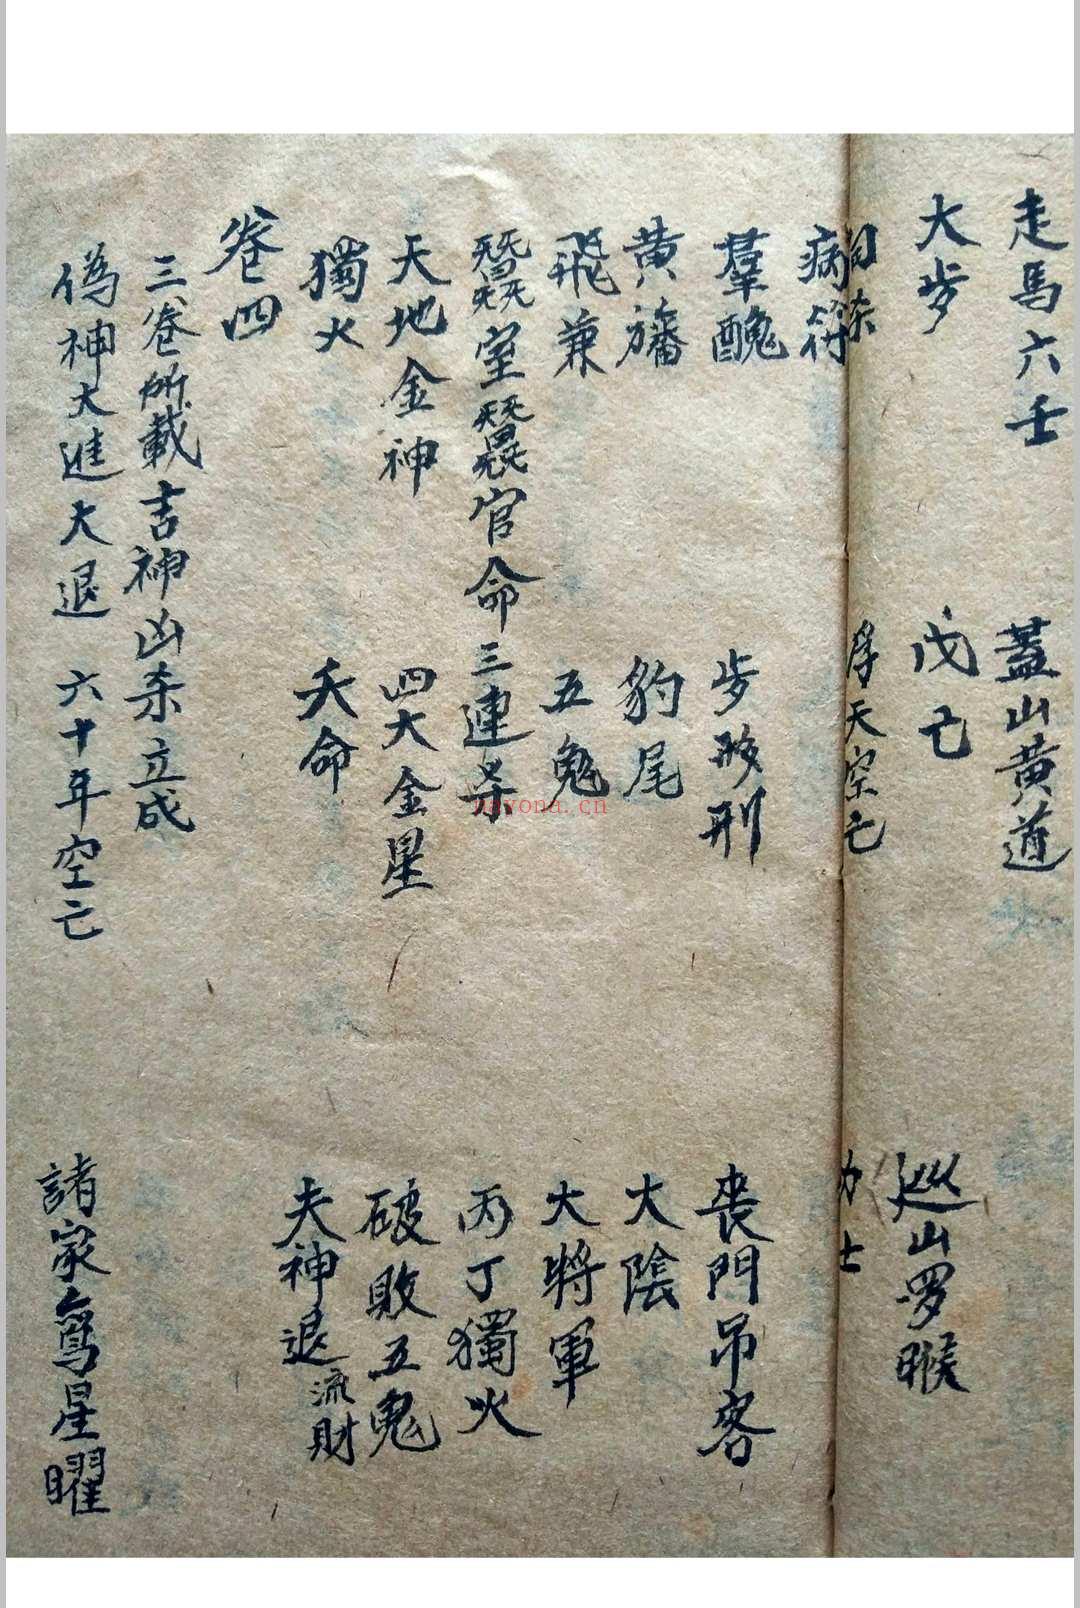 走馬六壬　蓋山黄道
大步　戊亡　巡山罗睺
浮天空亡　力士
病符
羣醜　步移刑　喪門吊客
黄旛　豹尾　大陰
飛兼　五鬼　大將軍
室　官命三連杀　丙丁獨火
天地金神　四大金星　破敗五鬼
獨火　夭命　夫神退流財
卷四
三卷所載吉神凶杀立成
偽神大進大退　六十年空亡　諸家鸞星曜
nayona.cn